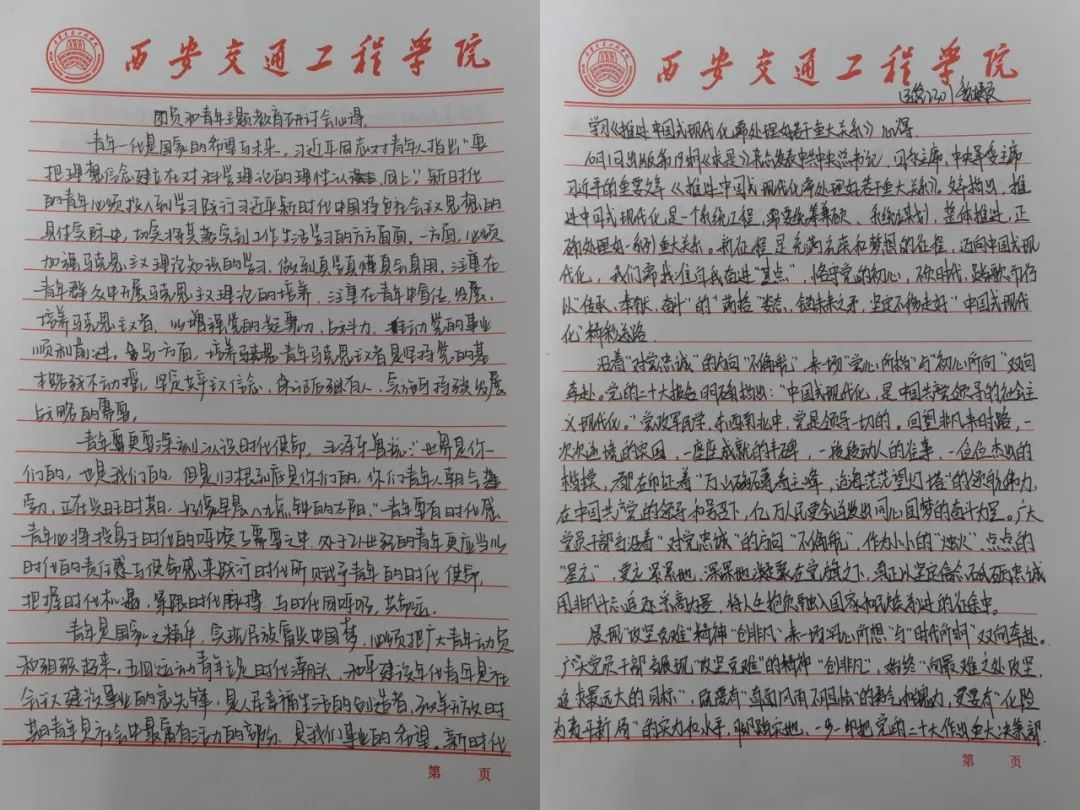 西安交通工程学院
团员和青年主题教育研讨会心得
青年一代是国家的希望与未来。习近平同志对青年人指出“要
把理想信念建立在对科学理论的理性认同上”。新时代
的青年必须投入到学习践行习近平新时代中国特色社会主义思想的
具体实际中，切实将其落实到工作生活学习的方方面面。一方面，必须
加强马克思主义理论知识的学习，做到真学真懂真会真用，注重在
青年群众中开展马克思主义理论的培养，注重在青年中宣传、发展、
培养马克思主义者，以增强党的凝聚力、战斗力，推动党的事业
顺利前进。另一方面，培养青年马克思主义者是坚持党的基
本路线不动摇，坚定共产主义信念，保证后继有人，实现可持续发展
战略的需要。
青年要更要深刻认识时代使命，毛泽东曾说：“世界是你
们的，也是我们的，但是归根到底是你们的。你们青年人朝气蓬
勃，正在兴旺时期，好像早晨八九点钟的太阳。”青年要有时代感
青年必将投身于时代的呼唤与需要之中，处于21世纪的青年更应当以
时代的责任感与使命感来践行时代所赋予青年的时代使命，
把握时代机遇，紧跟时代脉搏，与时代同呼吸，共命运。
青年是国家之精华，实现民族复兴中国梦，必须把广大青年动员
和组织起来，五四运动青年立足时代潮头，和平建设年代青年是社
会主义建设事业的急先锋，是人民幸福生活的创造者，改革开放时
期青年是社会中最富有活力的部分，是我们事业的希望。新时代
第 页
西安交通工程学院
学习《推进中国式现代化需处理好若干重大关系》心得
10月1日出版第19期《求是》杂志发表中共中央总书记，国家主席，中央军委主席
习近平的重要文章《推进中国式现代化需处理好若干重大关系》。文章指出，推
进中国式现代化，是一个系统工程，需要统筹兼顾、系统谋划、整体推进，正
确处理好一系列重大关系。新征程是充满光荣和梦想的征程，迈向中国式现
代化，我们需找准自我奋进“基点”，恪守党的初心，不负时代，踔厉前行
以“传承、奉献、奋斗”的姿态，锚定未来之矛，坚定不移走好“中国式现代
化”精彩之路
沿着“对党忠诚”的方向“不偏航”，来一场“实心所指”与“初心所向”双向
奔赴。党的二十大报告明确指出：“中国式现代化，是中国共产党领导的社会主
义现代化。”党政军民学，东西南北中，党是领导一切的。回望非凡来时路，一
次次逆境的突围，一座座成就的丰碑，一段段动人的往事，一位位杰出的
楷模，都在印证着“万山磅礴看主峰，沧海茫茫望灯塔”的领航伟力，
在中国共产党的领导和号召下，亿万人民更会迸发出同心圆梦的奋斗力量。广大
党员干部当沿着“对党忠诚”的方向“不偏航”，作为小小的“烛火”点点的
“星光”，更应紧紧地、深深地凝聚在党旗之下，真正以坚定信念不负忠诚
用非凡斗志追逐崇高梦想，将人生抱负融入国家和民族奋进的征途中。
展现“攻坚克难”精神“创非凡”，来一场“初心所想”与“时代所期”双向奔赴。
广大党员干部要展现“攻坚克难”的精神“创非凡”，始终“向最难之处攻坚，
追求最远大的目标”，既要有“直面风雨不退怯”的勇气和魄力，更要有“化险
为夷开新局”的实力和水平，脚踏实地，一步一印把党的二十大作出重大决策部
第 页